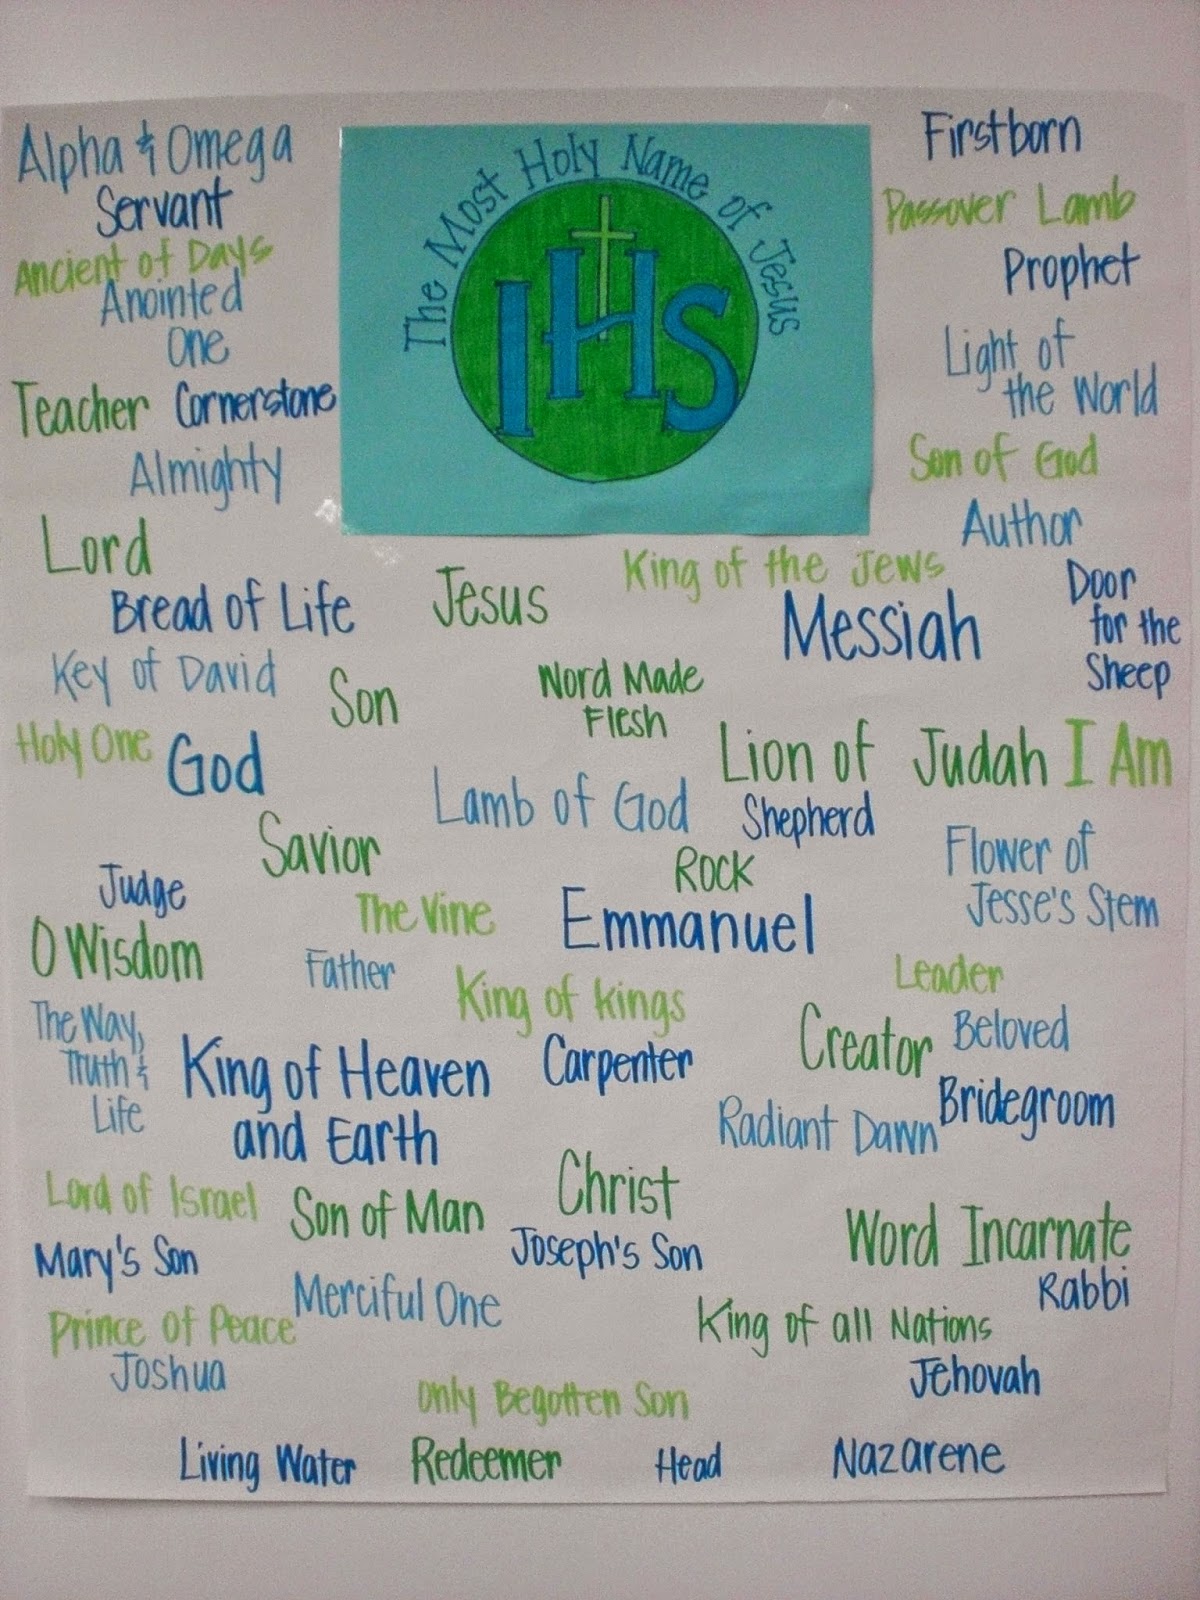 The Most Holy Name of Jesus
IHS
Alpha & Omega
Servant
Ancient of Days
Anointed
One
Teacher
Cornerstone
Almighty
Lord
Bread of Life
Key of David
Holy One
God
Son
Jesus
Firstborn
Passover Lamb
Prophet
Light of
the World
Son of God
Author
King of the Jews
Messiah
Door
for the
Sheep
Word Made
Flesh
Lion of Judah
I Am
Lamb of God
Shepherd
Savior
Rock
Flower of
Jesse's Stem
Judge
The Vine
Emmanuel
O Wisdom
Father
King of kings
Leader
Beloved
Creator
The Way,
Truth &
Life
King of Heaven
and Earth
Carpenter
Bridegroom
Radiant Dawn
Lord of Israel
Son of Man
Christ
Mary's Son
Joseph's Son
Word Incarnate
Rabbi
Merciful One
Prince of Peace
King of all Nations
Joshua
Jehovah
Only Begotten Son
Living Water
Redeemer
Head
Nazarene